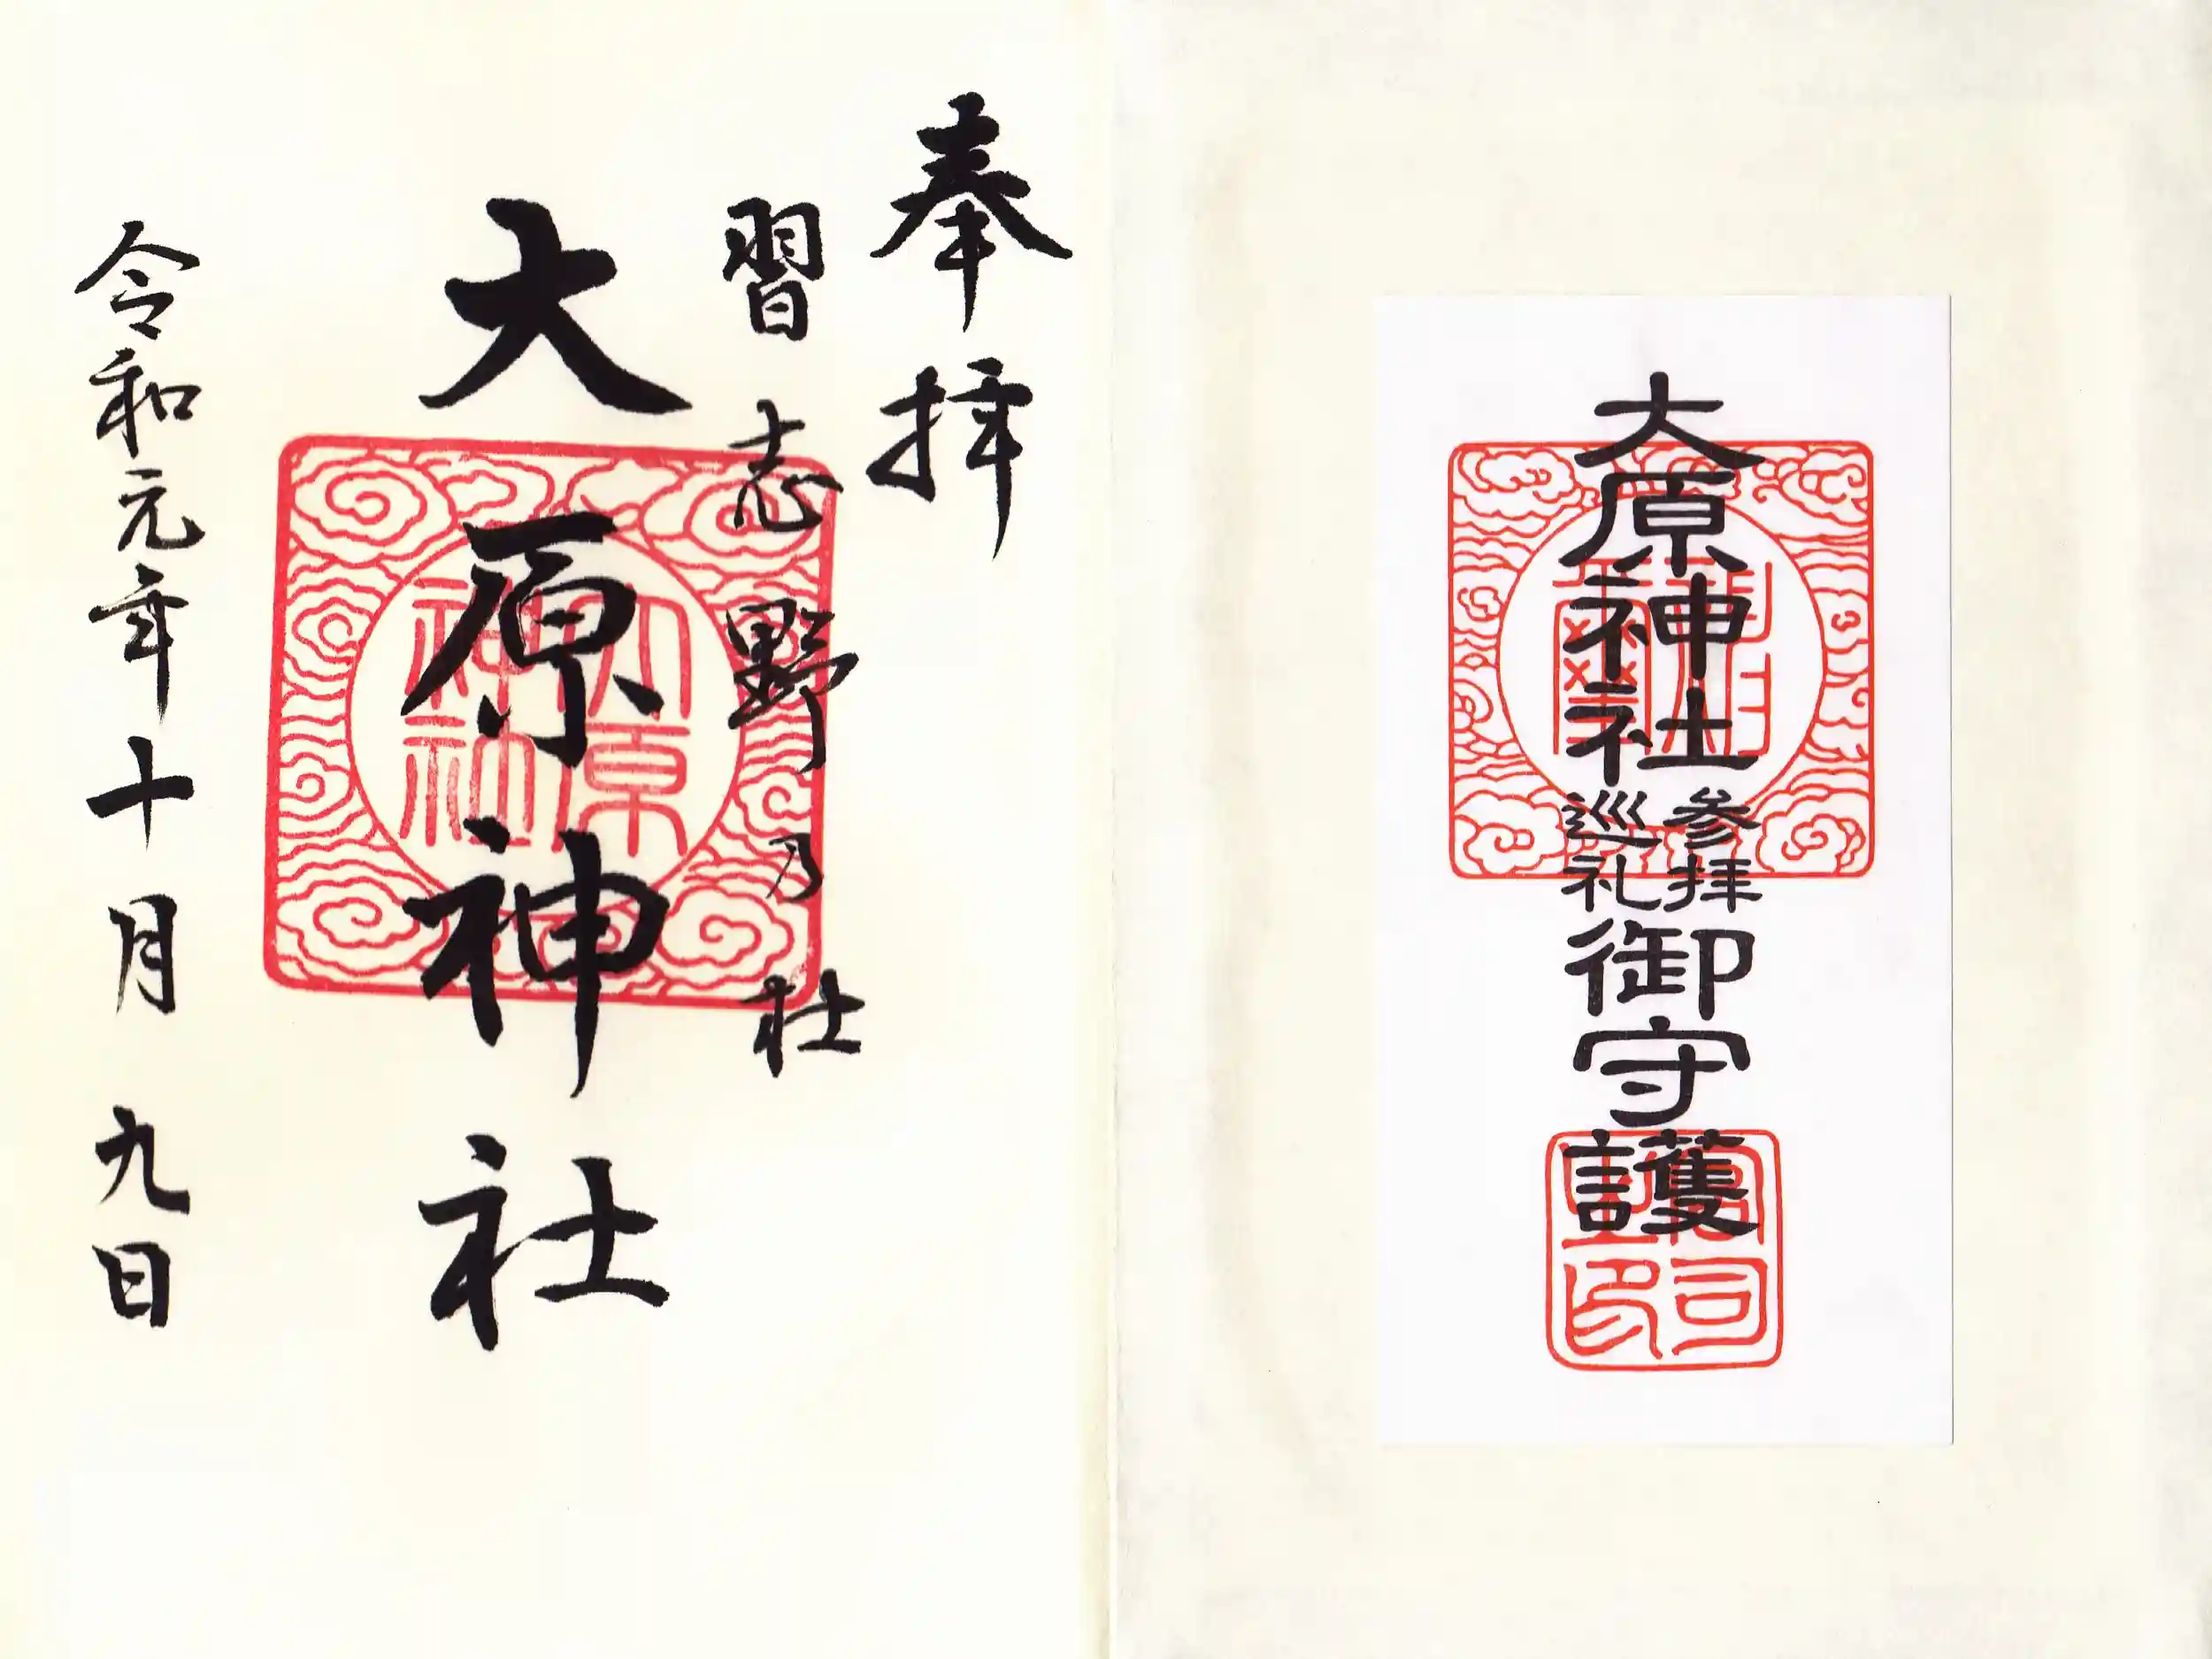 大原神社参拝巡礼御守護
宮司之印
奉拝
習志野乃杜
大原神社
大原神社
令和元年十月九日